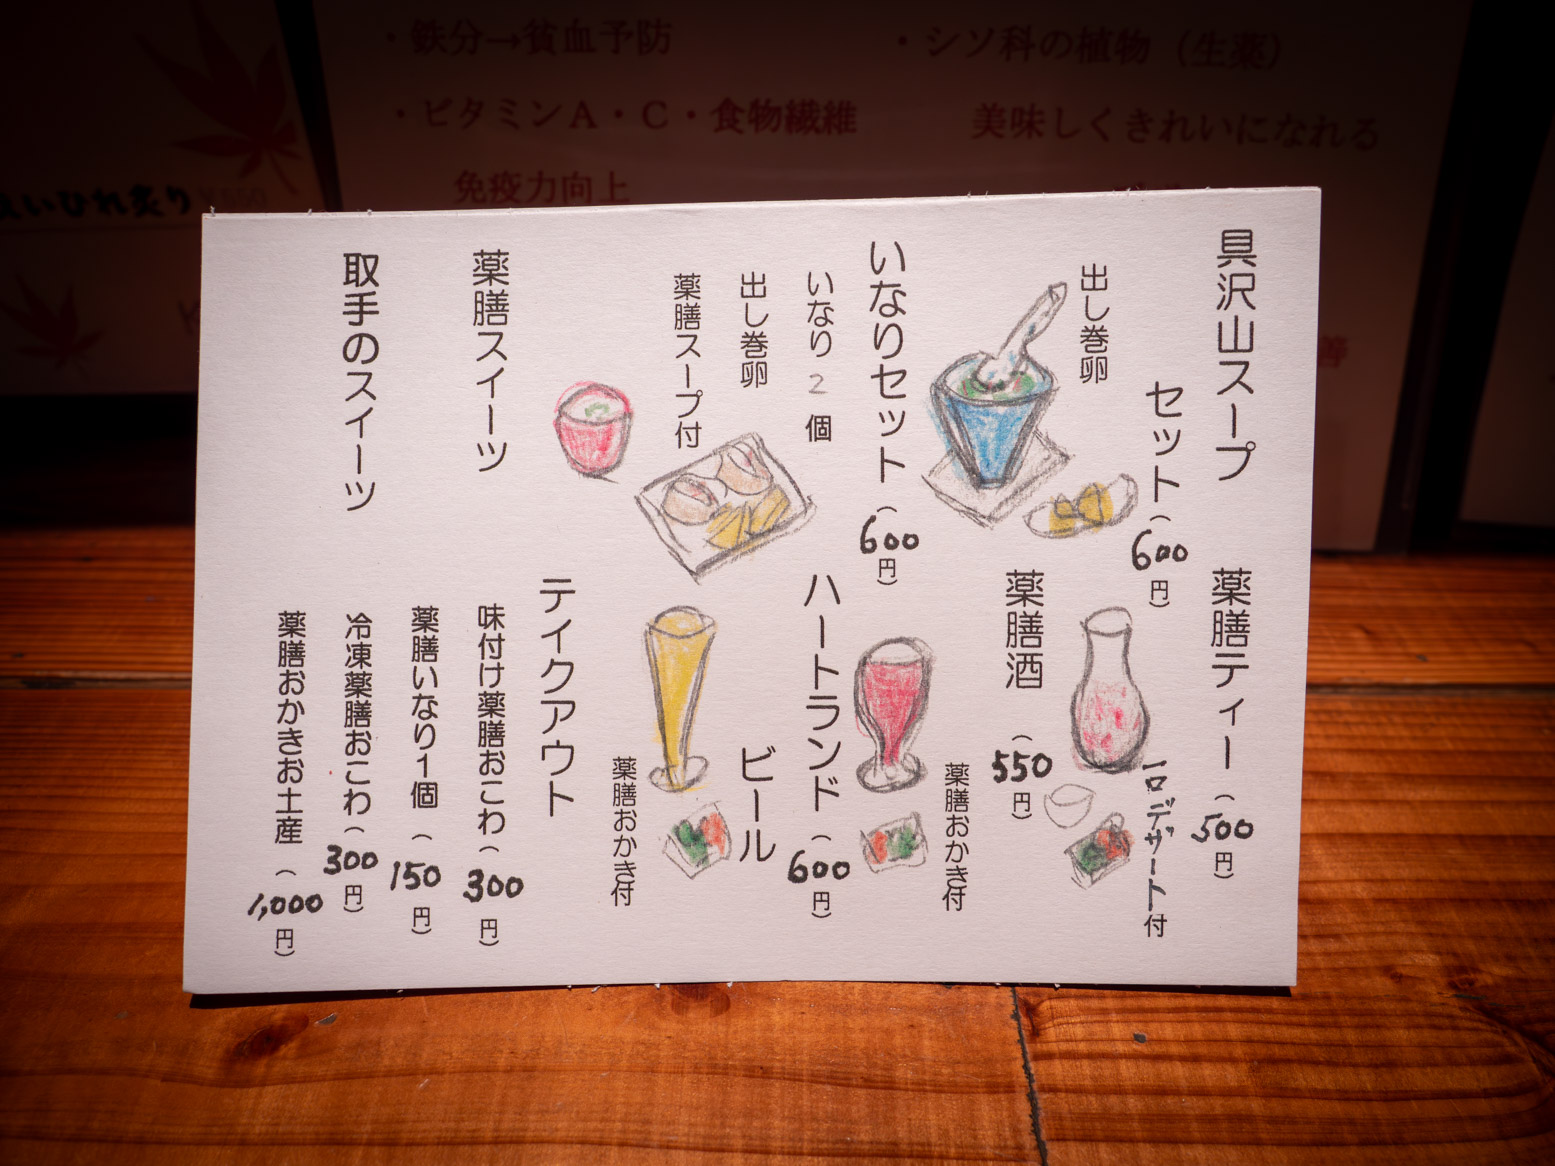 ・鉄分→貧血予防
・ビタミンA・C・食物繊維
免疫力向上
・シソ科の植物（生薬）
美味しくきれいになれる
いひれ炙り
善
具沢山スープ
セット（600円）
出し巻卵
いなりセット（600円）
いなり2個
出し巻卵
薬膳スープ付
薬膳スイーツ
取手のスイーツ
薬膳ティー（500円）
一口デザート付
薬膳酒（550円）
薬膳おかき付
ハートランド（600円）
ビール
薬膳おかき付
テイクアウト
味付け薬膳おこわ（300円）
薬膳いなり1個（150円）
冷凍薬膳おこわ（300円）
薬膳おかきお土産（1,000円）